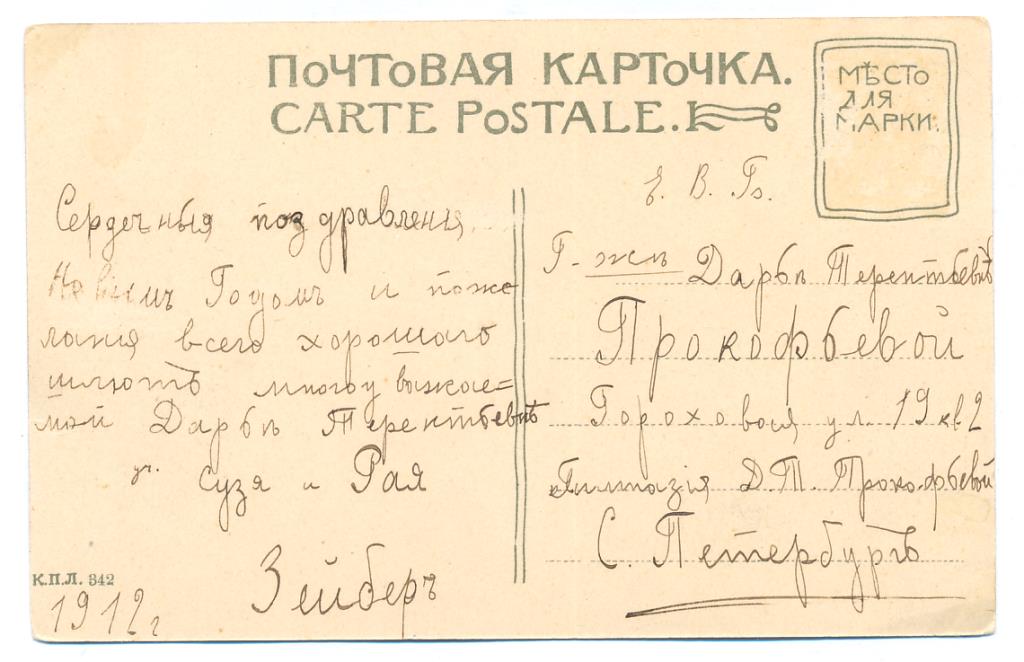 ПОЧТОВАЯ КАРТОЧКА.
CARTE POSTALE.
МѢСТО
ДЛЯ
МАРКИ.
Сердечныя поздравленія
Новымъ Годомъ и поже
ланія всего хорошаго
шлютъ многоуважае=
мой Дарьѣ Терентьевнѣ
уч. Сузя и Рая
Зейберъ
К.П.Л. 342
1912 г
Е. В. Бл.
Г-жѣ Дарьѣ Терентьевнѣ
Прокофьевой
Гороховая ул. 19 кв 2
Гимназія Д.Т. Прокофьевой
С. Петербургъ